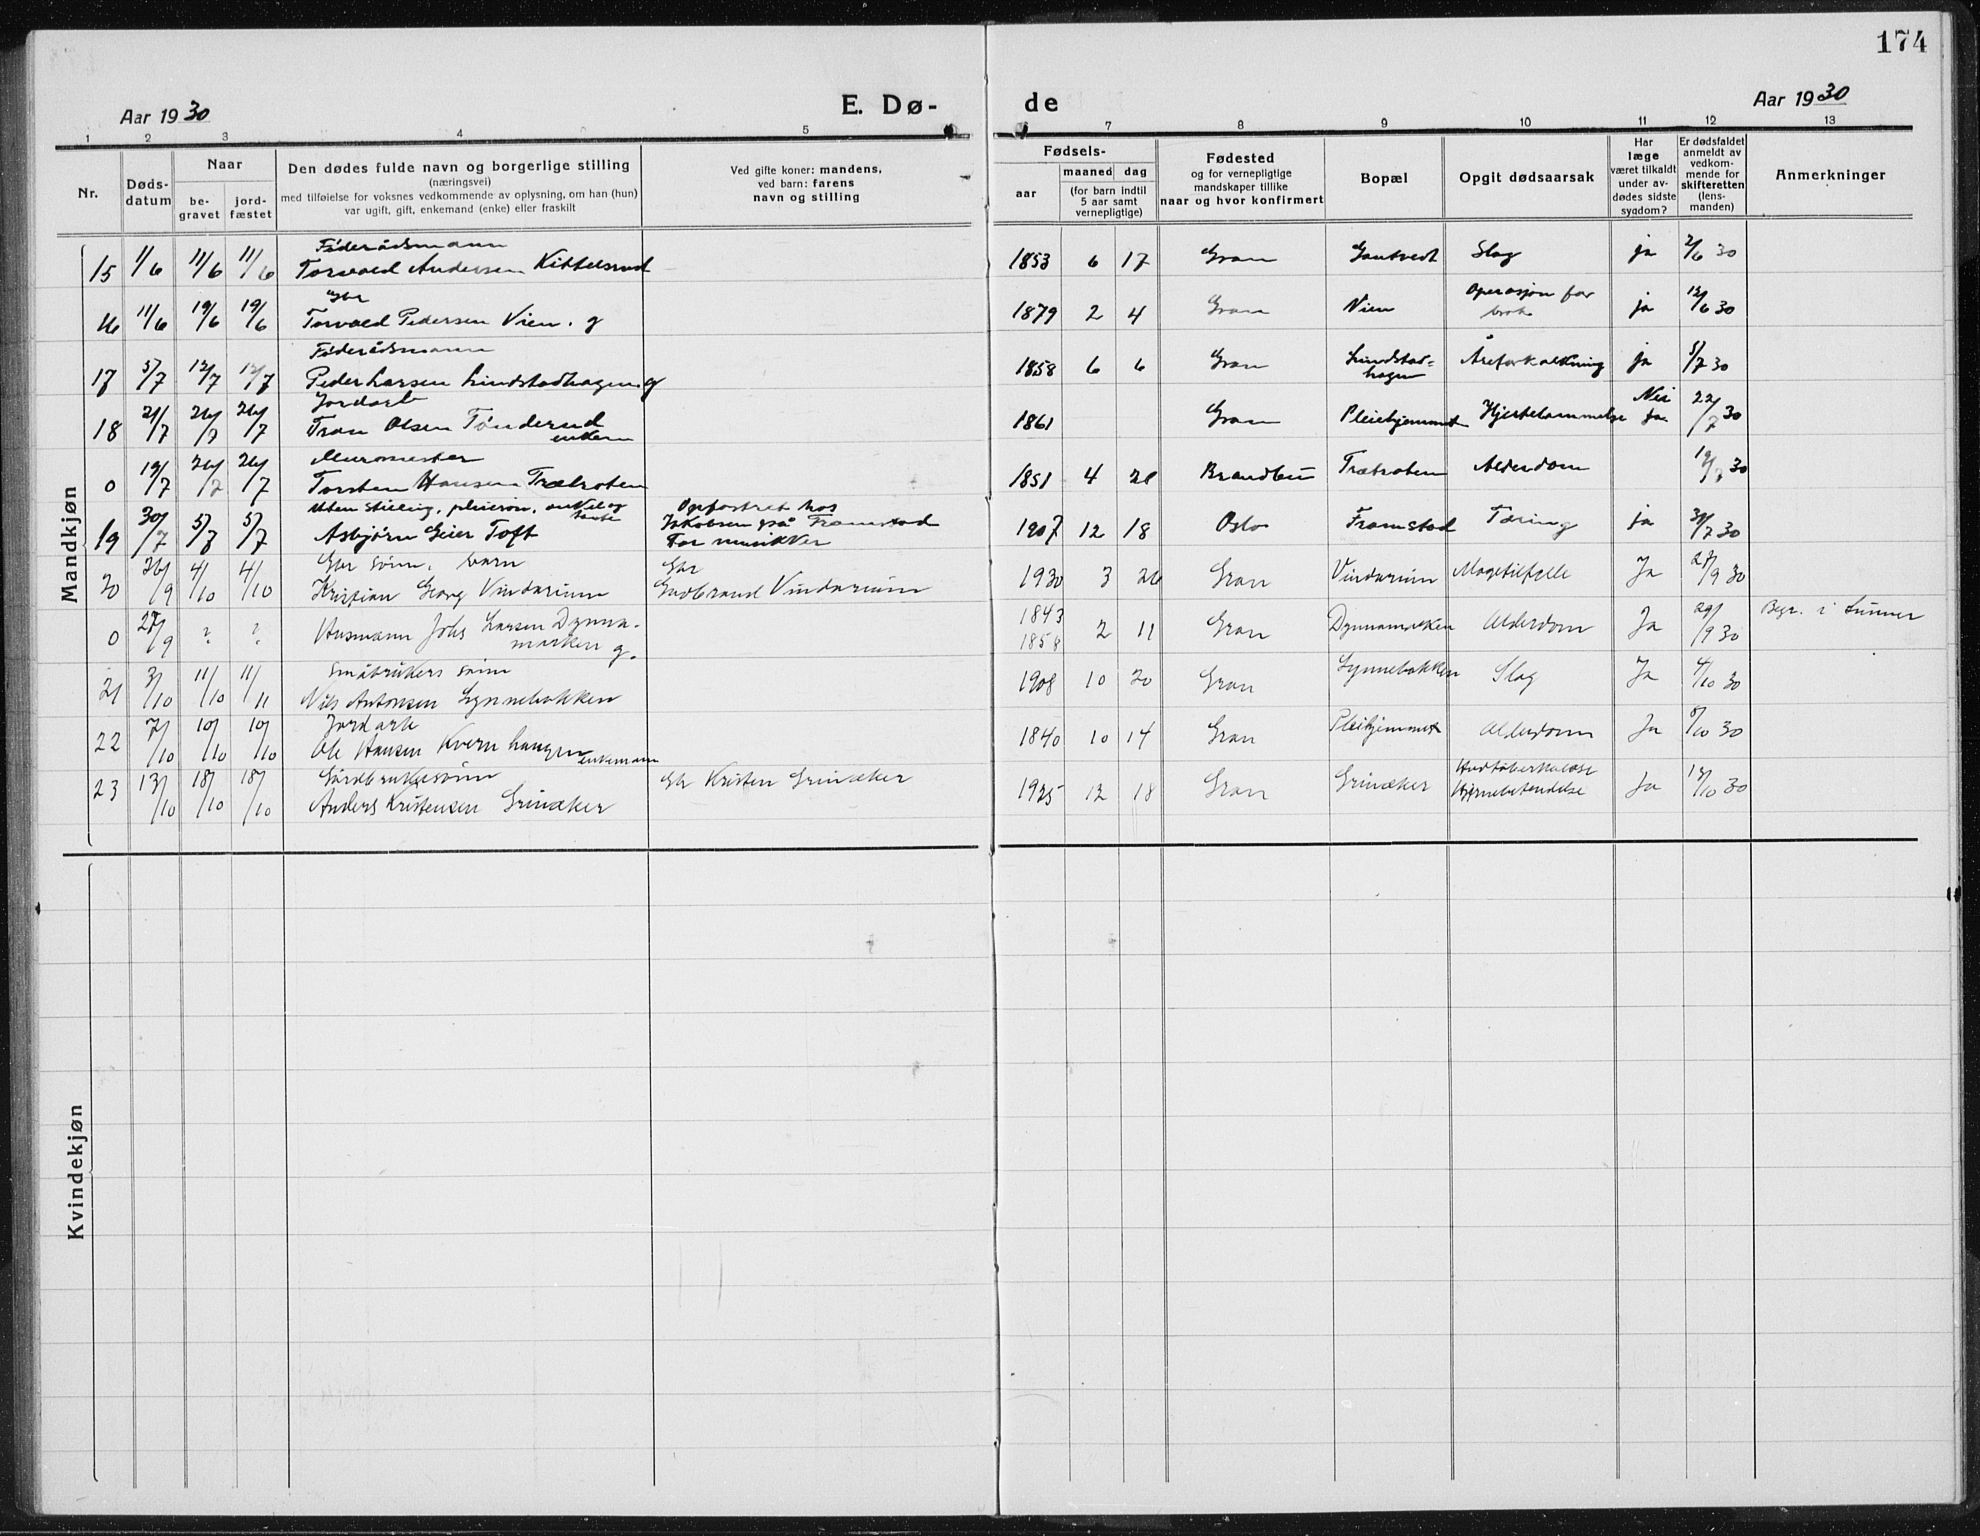 174
Aar 1930
E. Dø-
de
Aar 1930
1 2 3 4 5 7 8 9 10 11 12 13
Nr.
Døds-
datum
Naar
be-
gravet
jord-
fæstet
Den dødes fulde navn og borgerlige stilling
(næringsvei)
med tilføielse for voksnes vedkommende av oplysning, om han (hun)
var ugift, gift, enkemand (enke) eller fraskilt
Ved gifte koner: mandens,
ved barn: farens
navn og stilling
Fødsels-
aar
maaned dag
(for barn indtil
5 aar samt
vernepligtige)
Fødested
og for vernepligtige
mandskaper tillike
naar og hvor konfirmert
Bopæl
Opgit dødsaarsak
Har
læge
været tilkaldt
under av-
dødes sidste
sygdom?
Er dødsfaldet
anmeldt av
vedkom-
mende for
skifteretten
(lens-
manden)
Anmerkninger
Mandkjøn
Føderådsmann
15 1/6 11/6 11/6 Torvald Andersen Kittelsrud 1853 6 17 Gran Gautvedt Slag ja 2/6 30
Gbr
16 11/6 19/6 19/6 Torvald Pedersen Vien. g 1879 2 4 Gran Vien Operasjon for brok ja 12/6 30
Føderådsmann
17 5/7 12/7 12/7 Peder Larsen Lindstadhagen g 1858 6 6 Gran Lindstad-
hagen Åreforkalkning ja 5/7 30
Jordarb
18 21/7 26/7 26/7 Tron Olsen Tønderud
enkem 1861 Gran Pleiehjemmet Hjertelammelse Nei ja 22/7 30
Murmester
0 19/7 26/7 26/7 Torsten Hansen Trætroten 1851 4 Brandbu Trætroten Alderdom 19/7 30
Uten stilling, pleiesøn, onkel og
tante Opfostret hos
19 30/7 5/8 5/7 Asbjørn Geier Toft Jakobsen på Framstad
Far musikker 1907 12 18 Oslo Framstad Tæring ja 31/7 30
Gbr sønn, barn Gbr
20 26/9 4/10 4/10 Kristian Georg Vindorium Gudbrand Vindorium 1930 3 26 Gran Vindorium Magetilfelle Ja 27/9 30
0 27/9 ? ? Husmann Johs Larsen Dynna-
marken g. 1843
1858 2 11 Gran Dynnamarken Alderdom Ja 29/9 30 Begr. i Lunner
Småbrukers sønn
21 3/10 11/10 11/11 Nils Antonsen Lynnebakken 1908 10 20 Gran Lynnebakken Slag Ja 4/10 30
Jordarb
22 7/10 10/10 10/10 Ole Hansen Kvernhaugen
enkemann 1840 10 14 Gran Pleihjemmet Alderdom Ja 8/10 30
Gårdbrukersønn
23 13/10 18/10 18/10 Anders Kristensen Grinaker Gbr Kristen Grinaker 1925 12 18 Gran Grinaker Hjernebetendelse Ja 10 30
Kvindekjøn